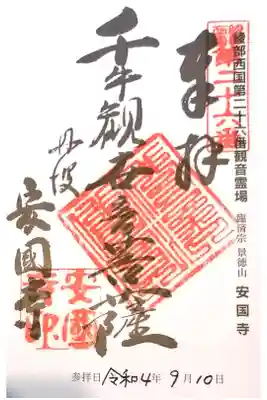 綾部西国第二十六番観音霊場
臨済宗 景徳山 安国寺
奉拝
千手観世音菩薩
丹波
安國寺
安國寺印
参拝日 令和4年 9月10日